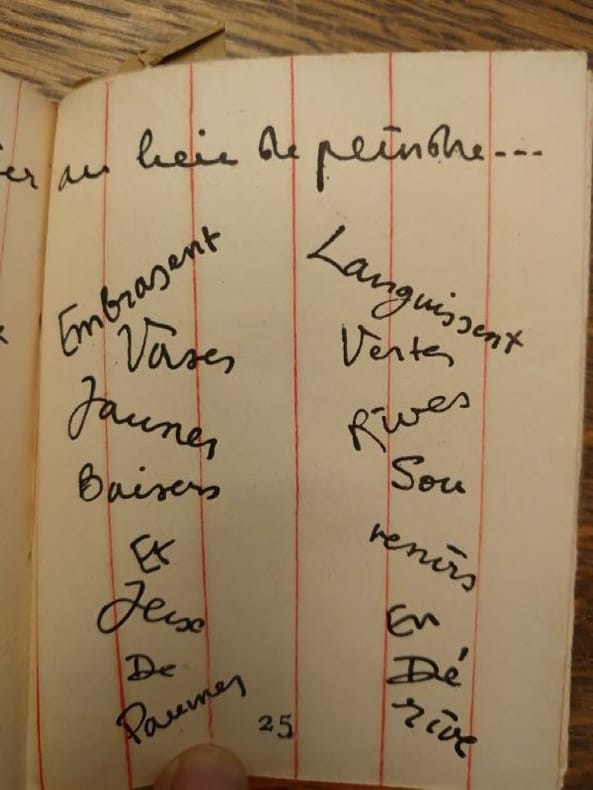 er au lieu de peindre...
Embrasent
Vases
Jaunes
Baisers
Et
Jeux
De
Paumes
Languissent
Vertes
Rives
Sou
venirs
En
Dé
rive
25